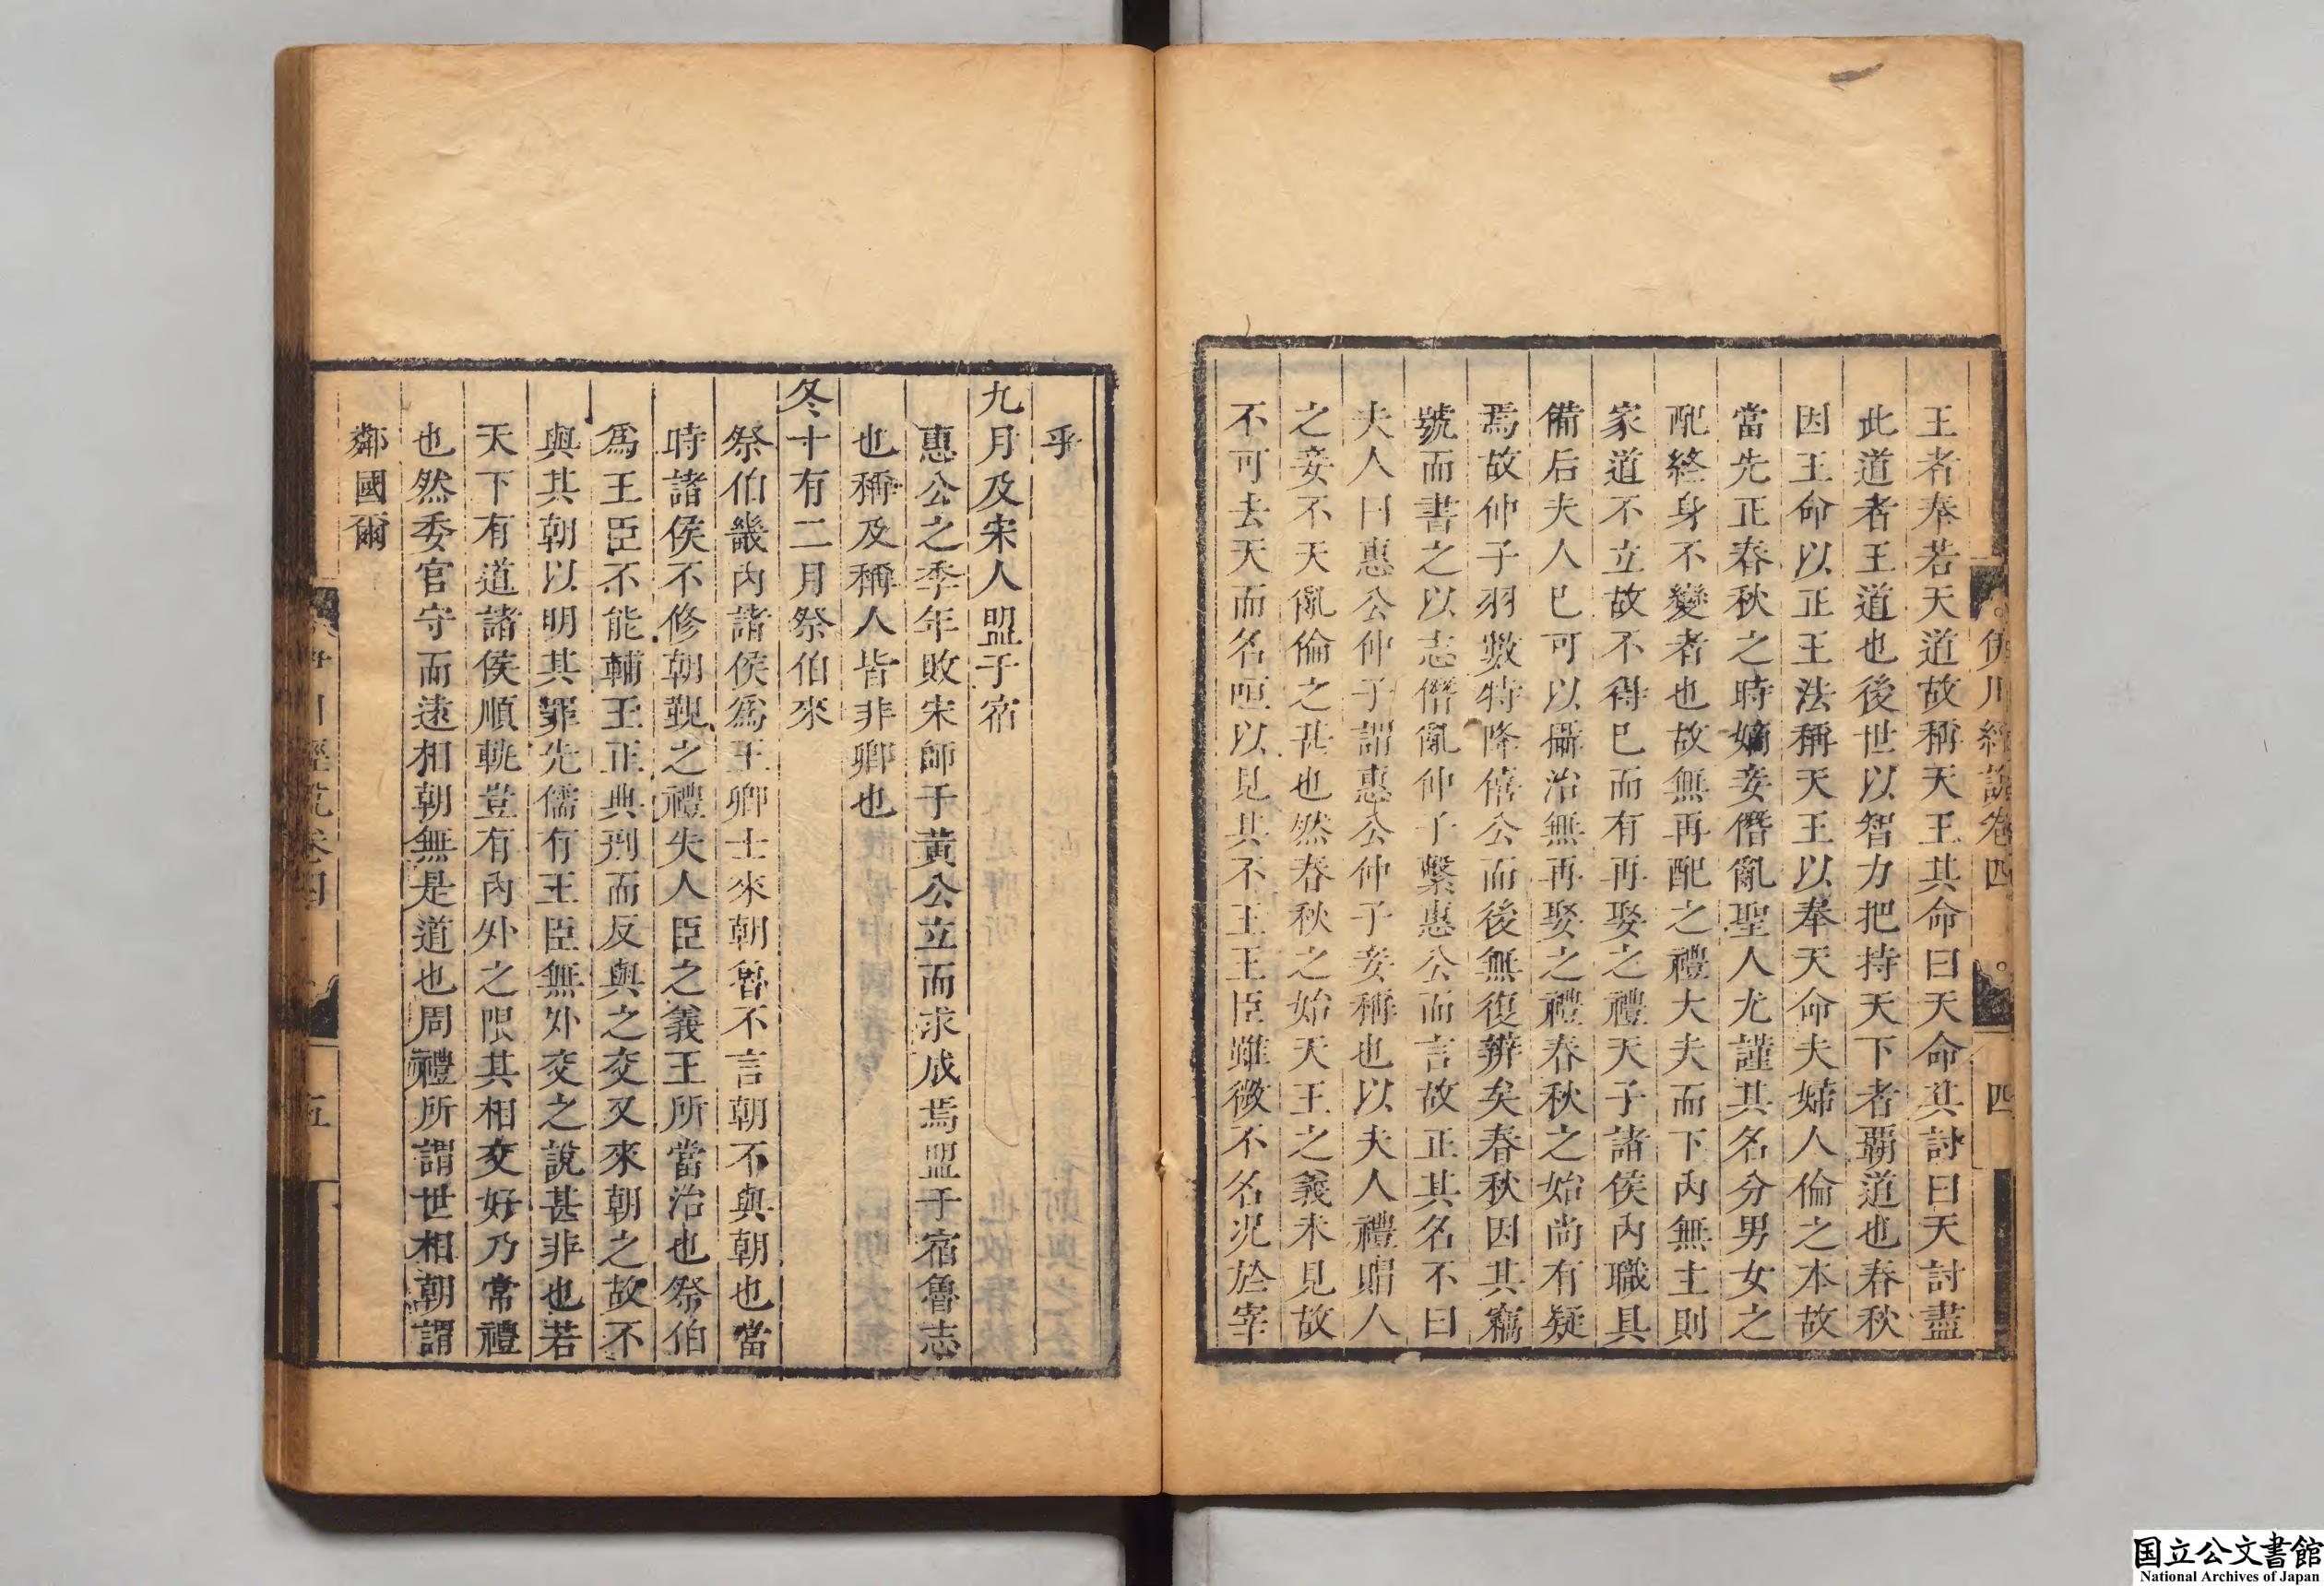 伊川經說卷四 四
王者奉若天道故稱天王其命曰天命其討曰天討盡
此道者王道也後世以智力把持天下者覇道也春秋
因王命以正王法稱天王以奉天命夫婦人倫之本故
當先正春秋之時嫡妾僭亂聖人尤謹其名分男女之
配終身不變者也故無再配之禮大夫而下內無主則
家道不立故不得已而有再娶之禮天子諸侯內職具
備后夫人已可以攝治無再娶之禮春秋之始尚有疑
焉故仲子羽數特降僖公而後無復辨矣春秋因其竊
號而書之以志僭亂仲子繫惠公而言故正其名不曰
夫人曰惠公仲子謂惠公仲子妾稱也以夫人禮賵人
之妾不天亂倫之甚也然春秋之始天王之義未見故
不可去天而名咺以見其不王王臣雖微不名況於宰
乎
九月及宋人盟于宿
惠公之季年敗宋師于黃公立而求成焉盟于宿魯志
也稱及稱人皆非卿也
冬十有二月祭伯來
祭伯畿內諸侯爲王卿士來朝魯不言朝不與朝也當
時諸侯不修朝覲之禮失人臣之義王所當治也祭伯
爲王臣不能輔王正典刑而反與之交又來朝之故不
與其朝以明其罪先儒有王臣無外交之說甚非也若
天下有道諸侯順軌豈有內外之限其相交好乃常禮
也然委官守而遠相朝無是道也周禮所謂世相朝謂
鄰國爾
五
国立公文書館
National Archives of Japan